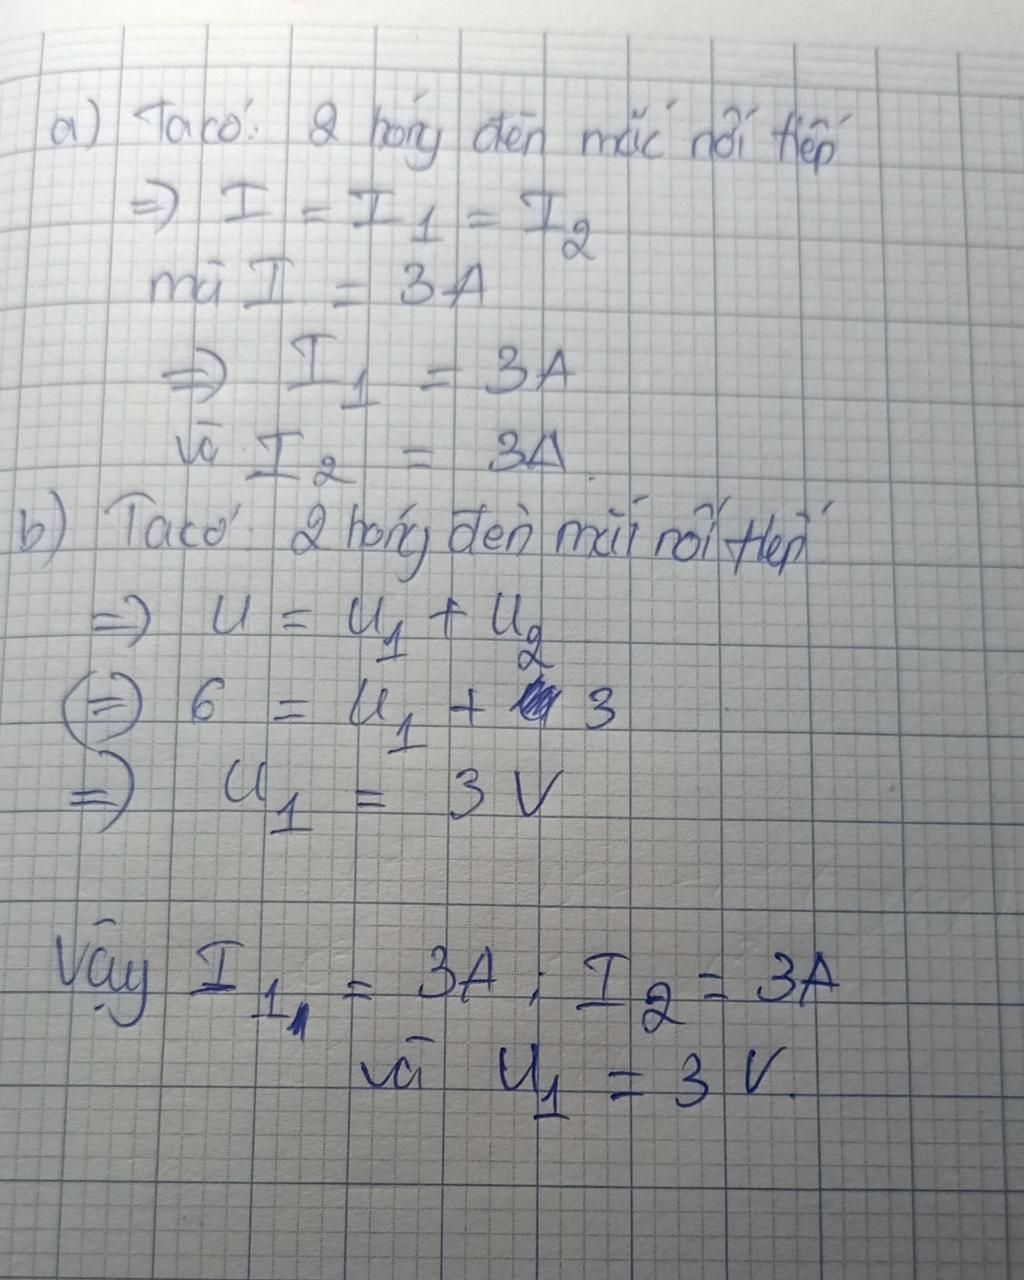 a) Ta có: 2 bóng đèn mắc nối tiếp
=> I = I1 = I2
mà I = 3A
=> I1 = 3A
và I2 = 3A.
b) Ta có: 2 bóng đèn mắc nối tiếp
=> U = U1 + U2
(=) 6 = U1 + 3
=> U1 = 3 V
Vậy I1 = 3A ; I2 = 3A
và U1 = 3 V.